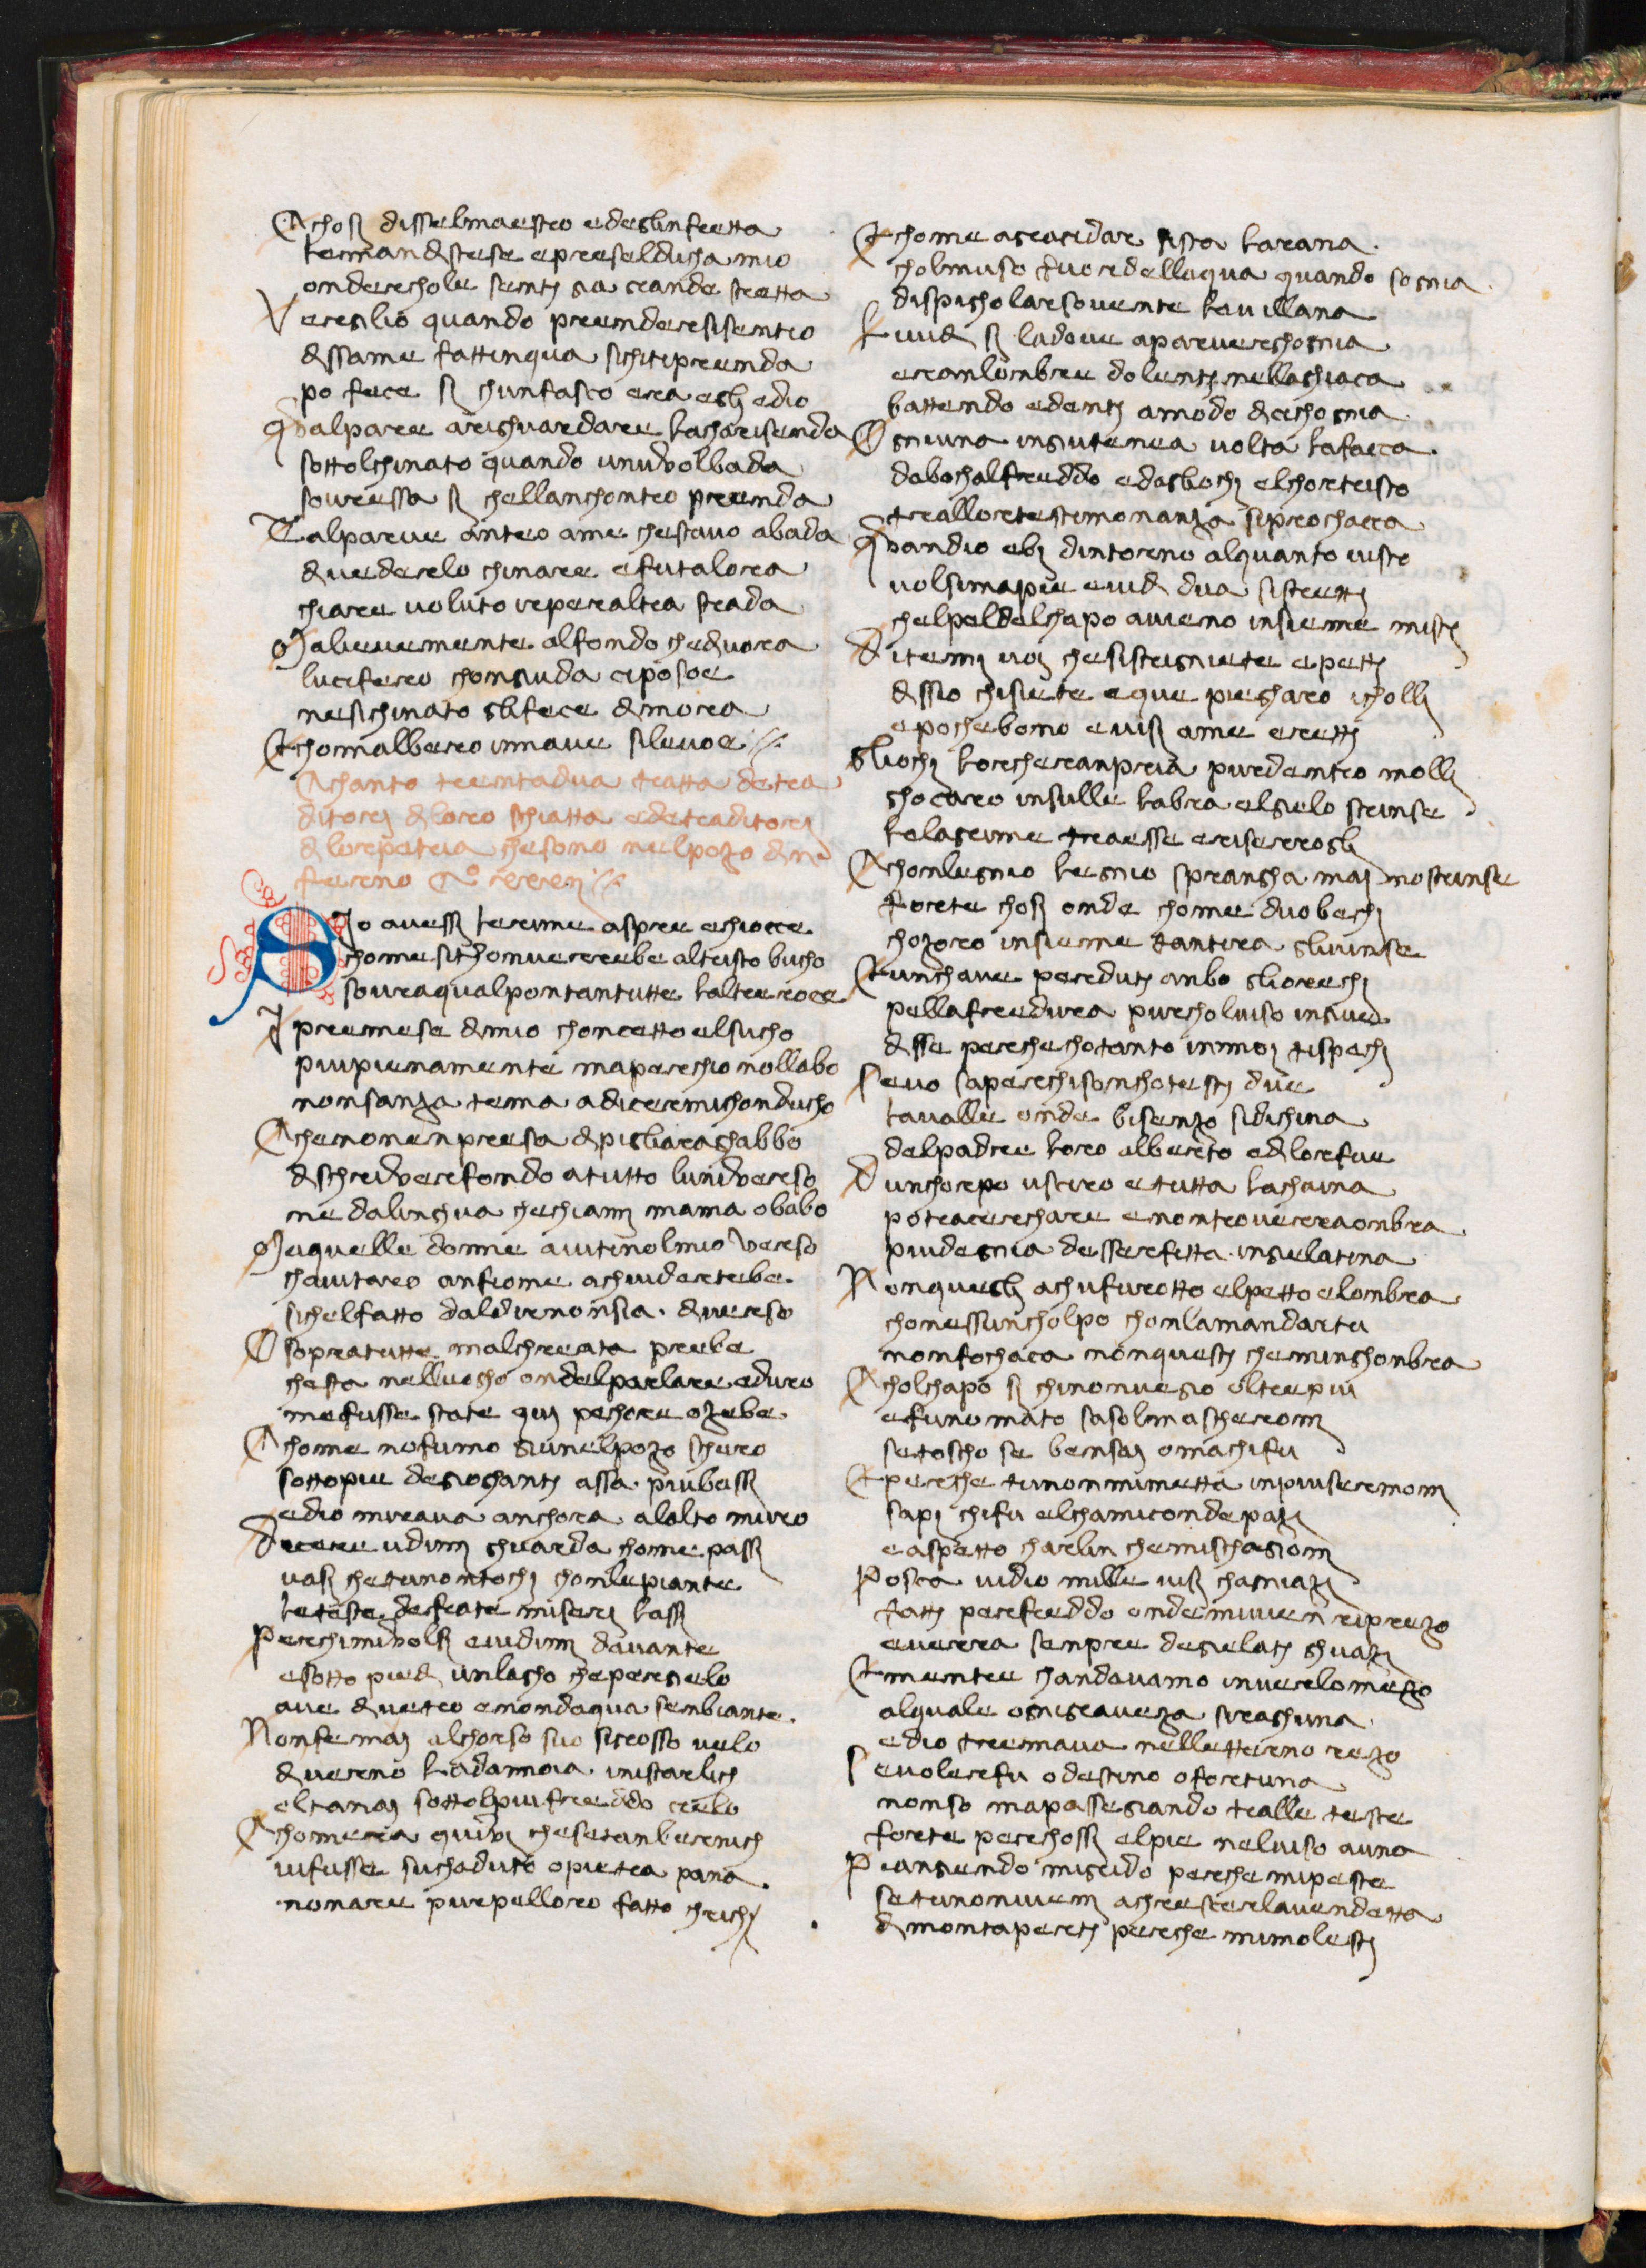 Chosi disselmaestro edeglinfretta
lemandistese epreselducha mio
onderchole senti gia grande stretta
Vergilio quando prendersisentio
dissame fattinqua sichitiprenda
po fece si chunfasco era eglj edio
Qvalpare arisghuardare lacharisenda
sottolchinato quando unvvolbada
sovressa si chellanchontro prenda
Talparve anteo ame chestavo abada
divederlo chinare efutalora
chiare voluto ireperaltra strada
Malievemente alfondo chedivora
lucifero chongiuda ciposoe
nesichinato glifece dimora
Echomalbero innave silevoe
Chanto trentadua tratta detra
ditori diloro schiatta edetraditori
dilorpatria chesono nelpozo dine
ferno Co xxxii
SIo avessi lerime aspre echiocce
chome sichonverrebe altristo bucho
sovraqualpontantutte laltre roce
Ipremese dimio choncetto elsucho
piupienamente maperchio nollabo
nonsanza tema adicermichonducho
Chenonenpresa dipigliaraghabbo
dischriverefondo atutto luniverso
ne dalinghua chechiami mama obabo
Maquelle donne aiutinolmio verso
chaiutaro anfione achiudertebe
sichelfatto daldirnonsia diverso
O sopratutte malchreata prebe
chesta nelluogho ondelparlare eduro
mefusse state qui pechore ozebe
Chome nofumo giunelpozo schuro
sottopie degioghanti assa piubassi
edio mirava anchora alalto muro
Dicere udimi ghuarda chome passi
vasi chetunontochi chonlepiante
leteste defrate miseri lassi
Perchimivolsi evidimi davante
esotto piedi unlagho chepergielo
ave divetro enondaqua senbiante
Nonfe mai alchorso suo sigrosso velo
diverno ladanoia instarlich
oltanai sottolpiufreddo cielo
Chomera quivi chesetanbernich
vifusse suchaduto opietra pana
nonare purpelloro fatto chrichi
Echome agracidar sista larana
cholmuso fuoridellaqua quando sognia
dispigholarsovente lavillana
Lividi si ladove aparverghognia
eranlombre dolenti nellaghiaca
battendo edenti amodo dicichognia
Ogniuna ingiutenea volta lafacca
dabochalfreddo edagliochi elchortristo
trallortestimonanza siprochacca
Qvandio ebi dintorno alquanto visto
volsimapie evidi dua sistretti
chelpeldelchapo avieno insieme misti
Ditemi voi chesistrigniete epetti
dissio chisiete eque pieгharo icholli
epochebono evisi ame eretti
Gliochi lorcheranpria purdentro molli
ghocaro insulle labra elgielo strinse
lelagrime traesse eriserrogli
Chonlegnio legnio sprangha mai nostrinse
forte chosi onde chome duobechi
chozoro insieme tantira glivinse
Eunchave perduti anbo gliorechi
pellafredura purcholviso ingiued
disse perchechotanto innnoi tispechi
Sevo saperchisonchotesti due
lavalle onde bisenzo sidichina
delpadre loro alberto edilorfue
Dunchorpo usciro etutta lachaina
potracerchare enontroverraonbra
piudegnia desserfitta ingielatina
Nonquegli achufurotto elpetto elombra
chonessuncholpo chonlamandartu
nonfochaca nonquesti cheminghonbra
Cholchapo si chinonvegio oltrepiu
efunomato sasolmascheroni
setoscho se bensai omachifu
Eperche tunonmimetta inpiusermoni
sapi chifu elchamicondepazi
easpetto charlin chemischagioni
Poscia vidio mille visi chagniazi
fatti perfreddo ondemivien riprezo
everra senpre degielati ghuazi
Ementre chandavamo inverlomezo
alquale ognigraveza siraghuna
edio tremava nelletterno rezo
Sevolerfu odestino ofortuna
nonso mapassegiando tralle teste
forte perchossi elpie nelviso auna
Piangiendo misgrido perche mipeste
setunonvieni achresterlavendetta
dimontaperti perche mimolesti